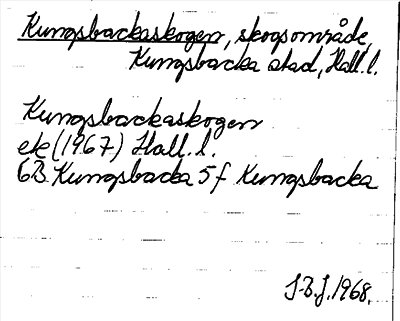 Kungsbackaskogen, skogsområde,
Kungsbacka stad, Hall.l.
Kungsbackaskogen
ek (1967) Hall.l.
6B Kungsbacka 5f Kungsbacka
J.B.J. 1968.